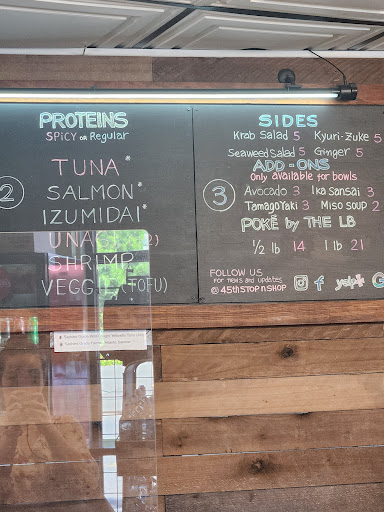 PROTEINS
SPiCY OR Regular
2
TUNA*
SALMON*
IZUMIDAI*
UNAGI
SHRIMP
VEGGIE (TOFU)
SIDES
Krab Salad 5 Kyuri-Zuke 5
Seaweed Salad 5 Ginger 5
ADD-ONS
Only available for bowls
3
Avocado 3 Ika Sansai 3
Tamago Yaki 3 Miso Soup 2
POKÉ by THE LB
1/2 lb 14 1 lb 21
FOLLOW US
for news and updates
@ 45th STOP n SHOP
f yelp G